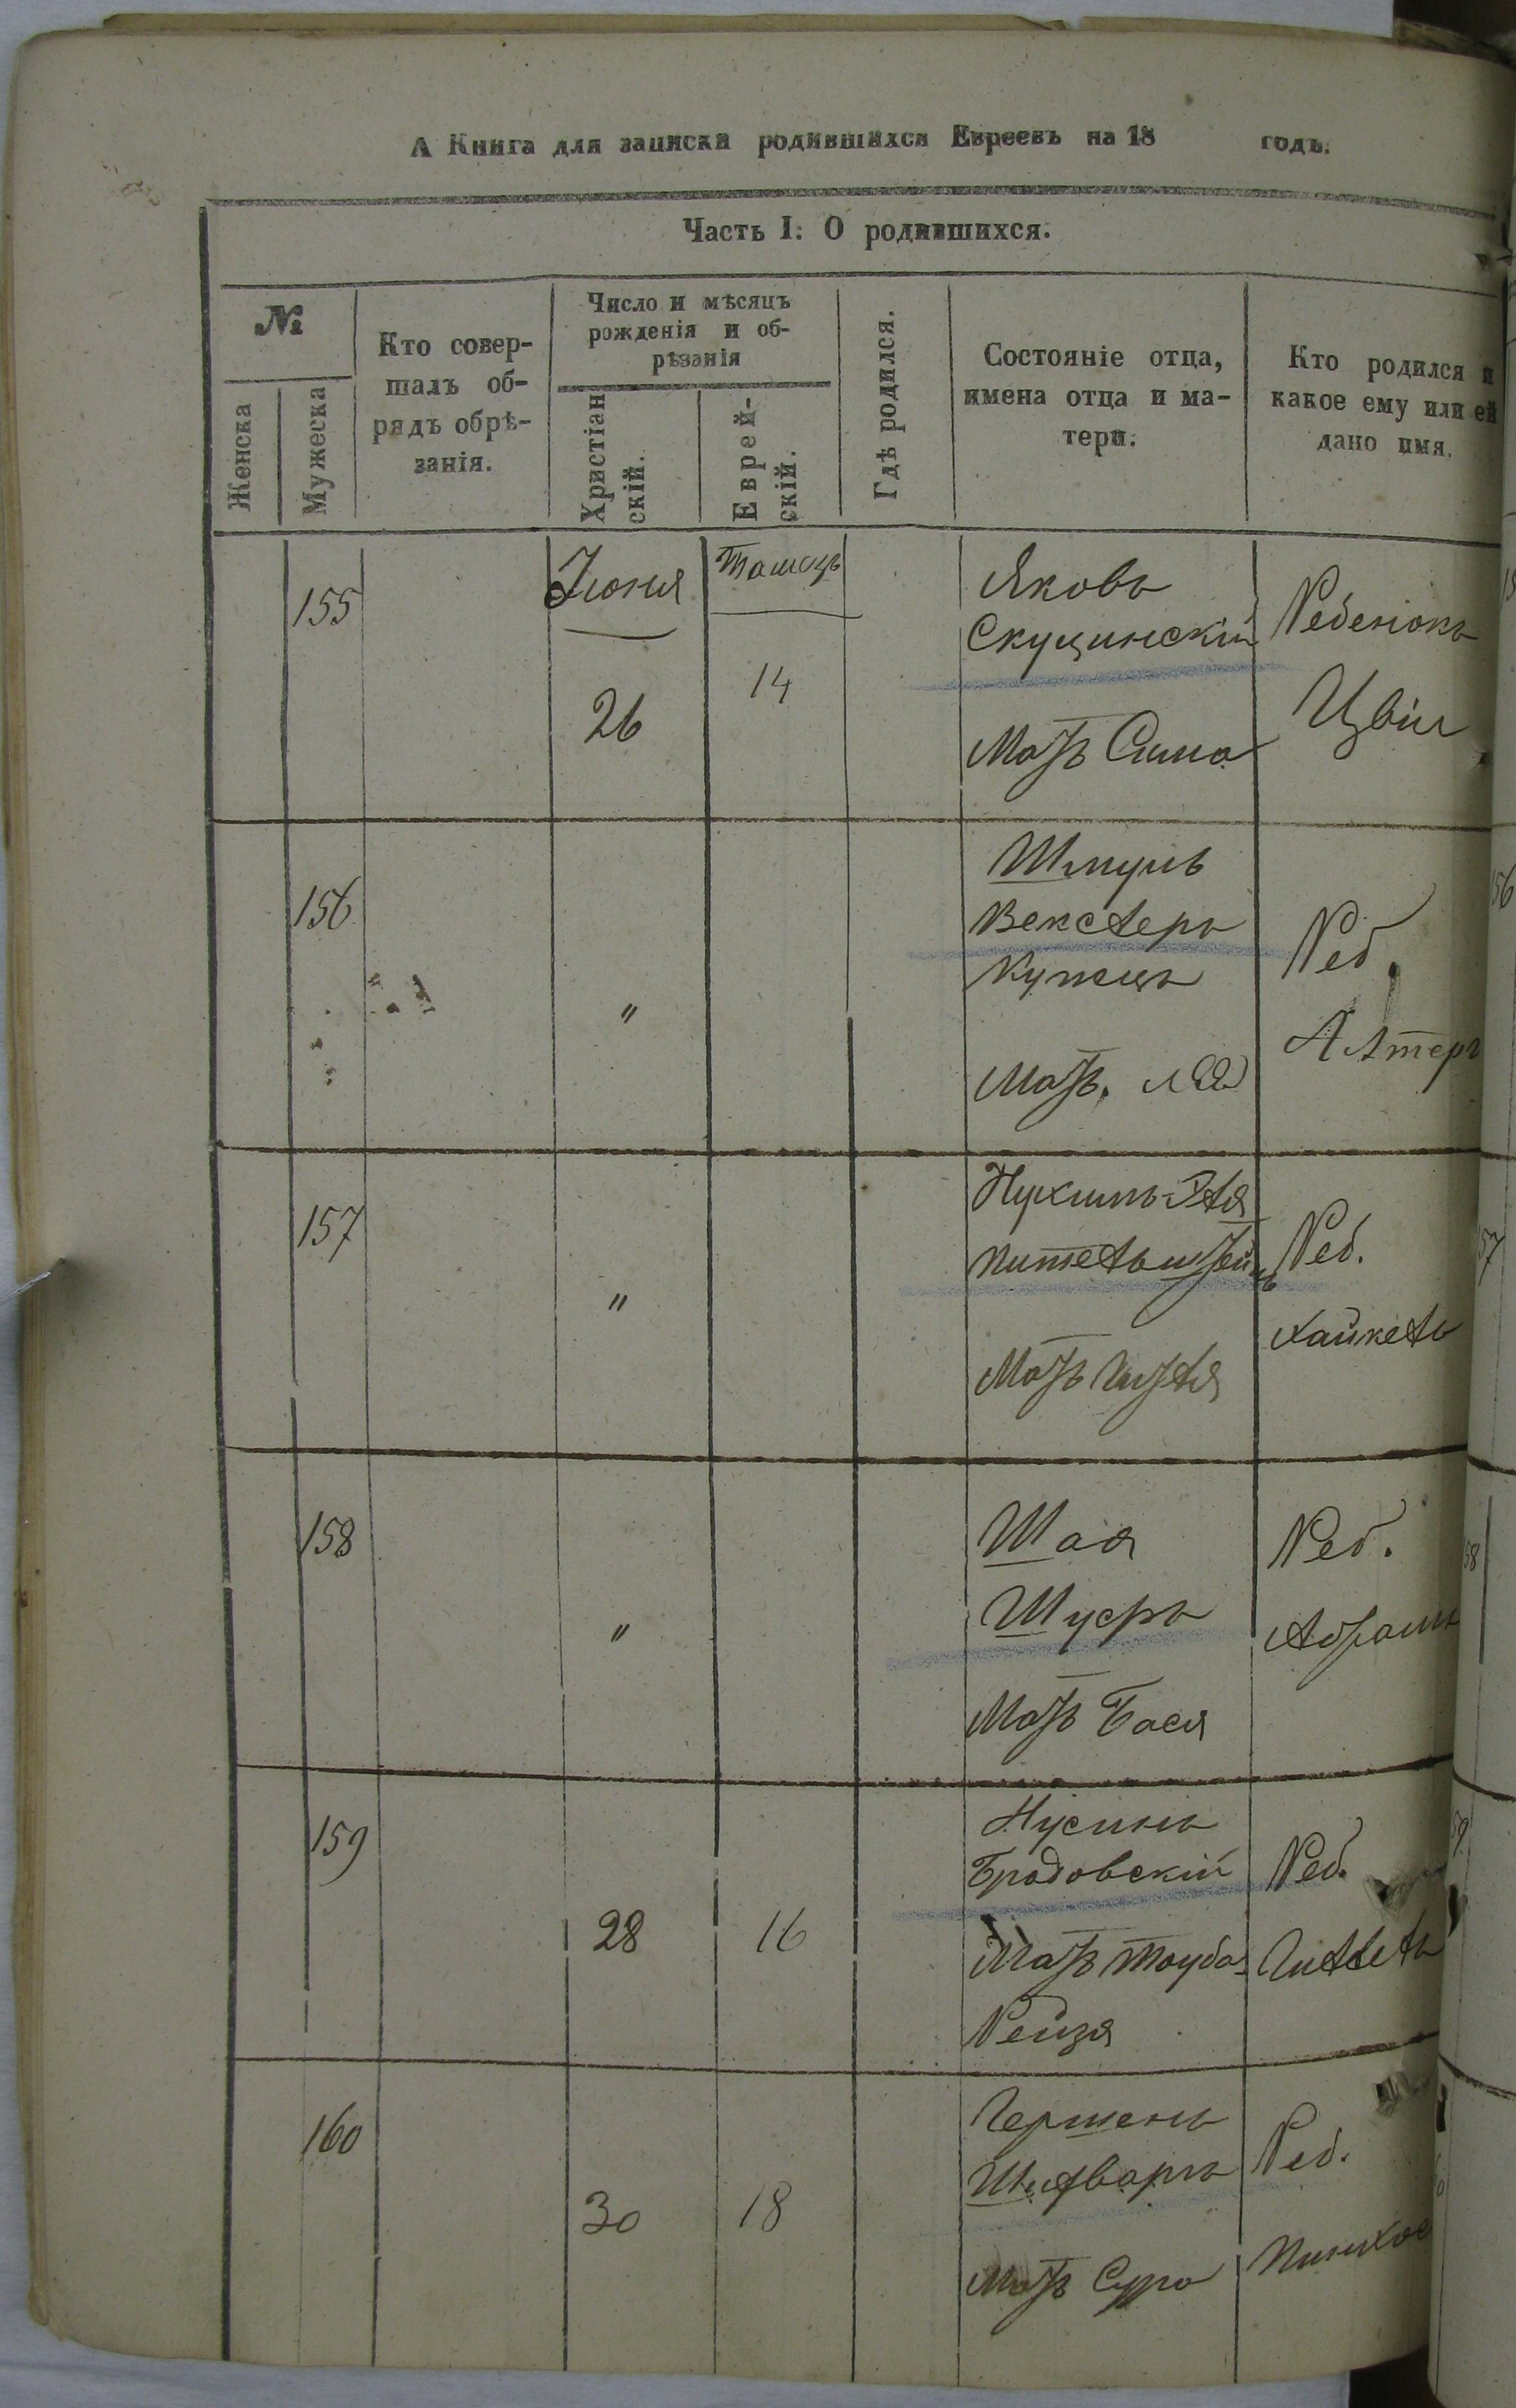 А Книга для записки родившихся Евреевъ на 18 годъ.
Часть I: О родившихся.
№
Женска
Мужеска
Кто совер-
шалъ об-
рядъ обрѣ-
занія.
Число и мѣсяцъ
рожденія и об-
рѣзанія
Христіан
скій.
Еврей-
скій.
Гдѣ родился.
Состояніе отца,
имена отца и ма-
тери.
Кто родился и
какое ему или ей
дано имя.
155
Іюня
26
14
Яковъ
Скущинскій
Мать Сима
Ребенокъ
156
"
Шмуль
Векслеръ
Купецъ
Мать. Лея
Реб.
Алтеръ
157
"
Мать
Реб.
Хайкель
158
"
Шая
Шусръ
Мать Бася
Реб.
Абрамъ
159
28
16
Нусинъ
Бродовскій
Мать Тауба
Рейзя
Реб.
Гиллель
160
30
18
Гершенъ
Мать Сура
Реб.
Пинхас